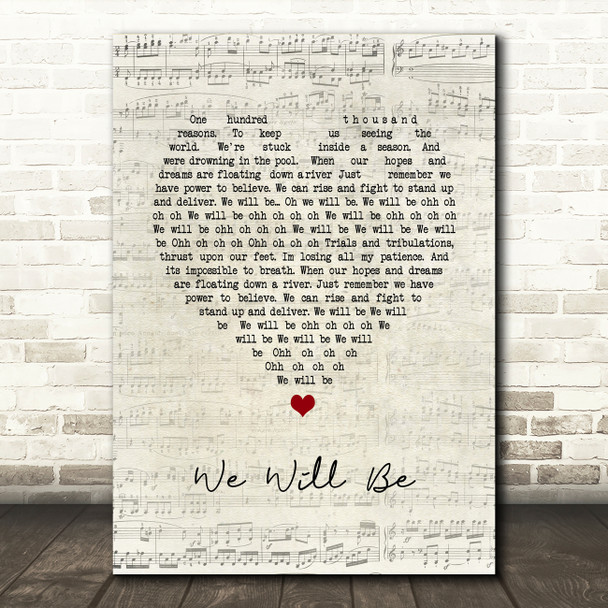 One hundred thousand
reasons. To keep us seeing the
world. We're stuck inside a season. And
were drowning in the pool. When our hopes and
dreams are floating down a river Just remember we
have power to believe. We can rise and fight to stand up
and deliver. We will be… Oh we will be. We will be ohh oh
oh oh We will be ohh oh oh oh We will be ohh oh oh oh
We will be ohh oh oh oh We will be We will be We will
be Ohh oh oh oh Ohh oh oh oh Trials and tribulations,
thrust upon our feet. Im losing all my patience. And
its impossible to breath. When our hopes and dreams
are floating down a river. Just remember we have
power to believe. We can rise and fight to
stand up and deliver. We will be We will
be We will be ohh oh oh oh We
will be We will be We will
be Ohh oh oh oh
Ohh oh oh oh
We will be
We Will Be